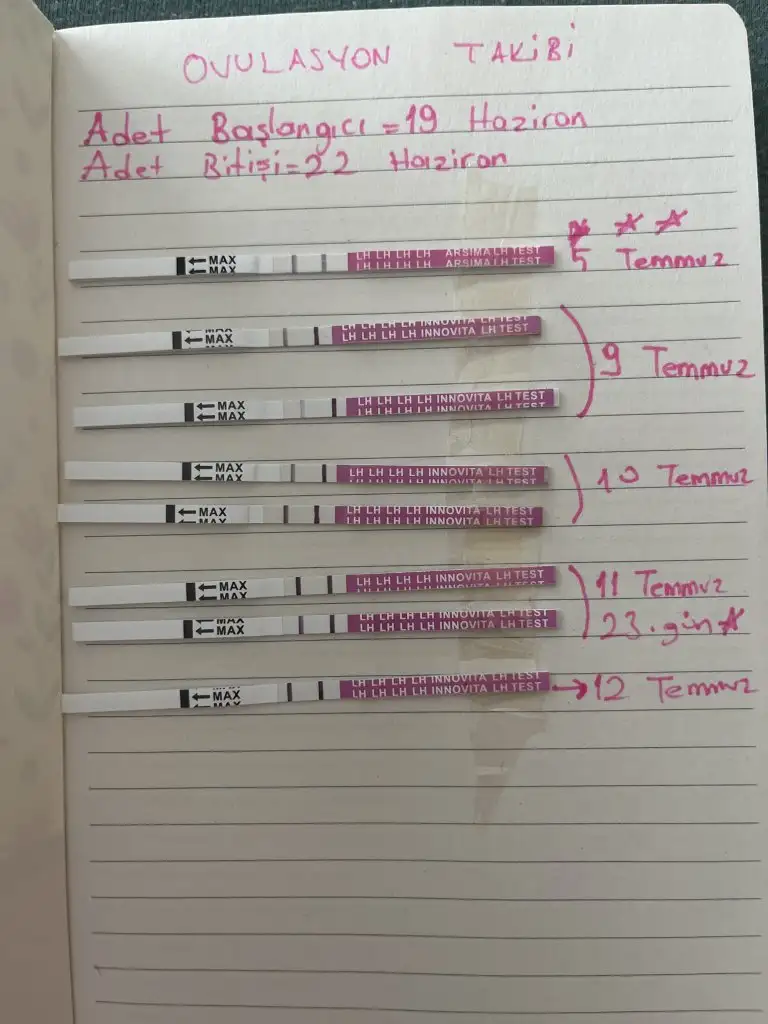 OVULASYON TAKİBİ
Adet Başlangıcı = 19 Haziran
Adet Bitişi = 22 Haziran
MAX
MAX
LH LH LH LH ARSIMA LH TEST
LH LH LH LH ARSIMA LH TEST
5 Temmuz
MAX
MAX
LH LH LH LH INNOVITA LH TEST
LH LH LH LH INNOVITA LH TEST
9 Temmuz
MAX
MAX
LH LH LH LH INNOVITA LH TEST
LH LH LH LH INNOVITA LH TEST
MAX
MAX
LH LH LH LH INNOVITA LH TEST
LH LH LH LH INNOVITA LH TEST
10 Temmuz
MAX
MAX
LH LH LH LH INNOVITA LH TEST
LH LH LH LH INNOVITA LH TEST
MAX
MAX
LH LH LH LH INNOVITA LH TEST
LH LH LH LH INNOVITA LH TEST
11 Temmuz
MAX
MAX
LH LH LH LH INNOVITA LH TEST
LH LH LH LH INNOVITA LH TEST
23.gün
MAX
MAX
LH LH LH LH INNOVITA LH TEST
LH LH LH LH INNOVITA LH TEST
→12 Temmuz